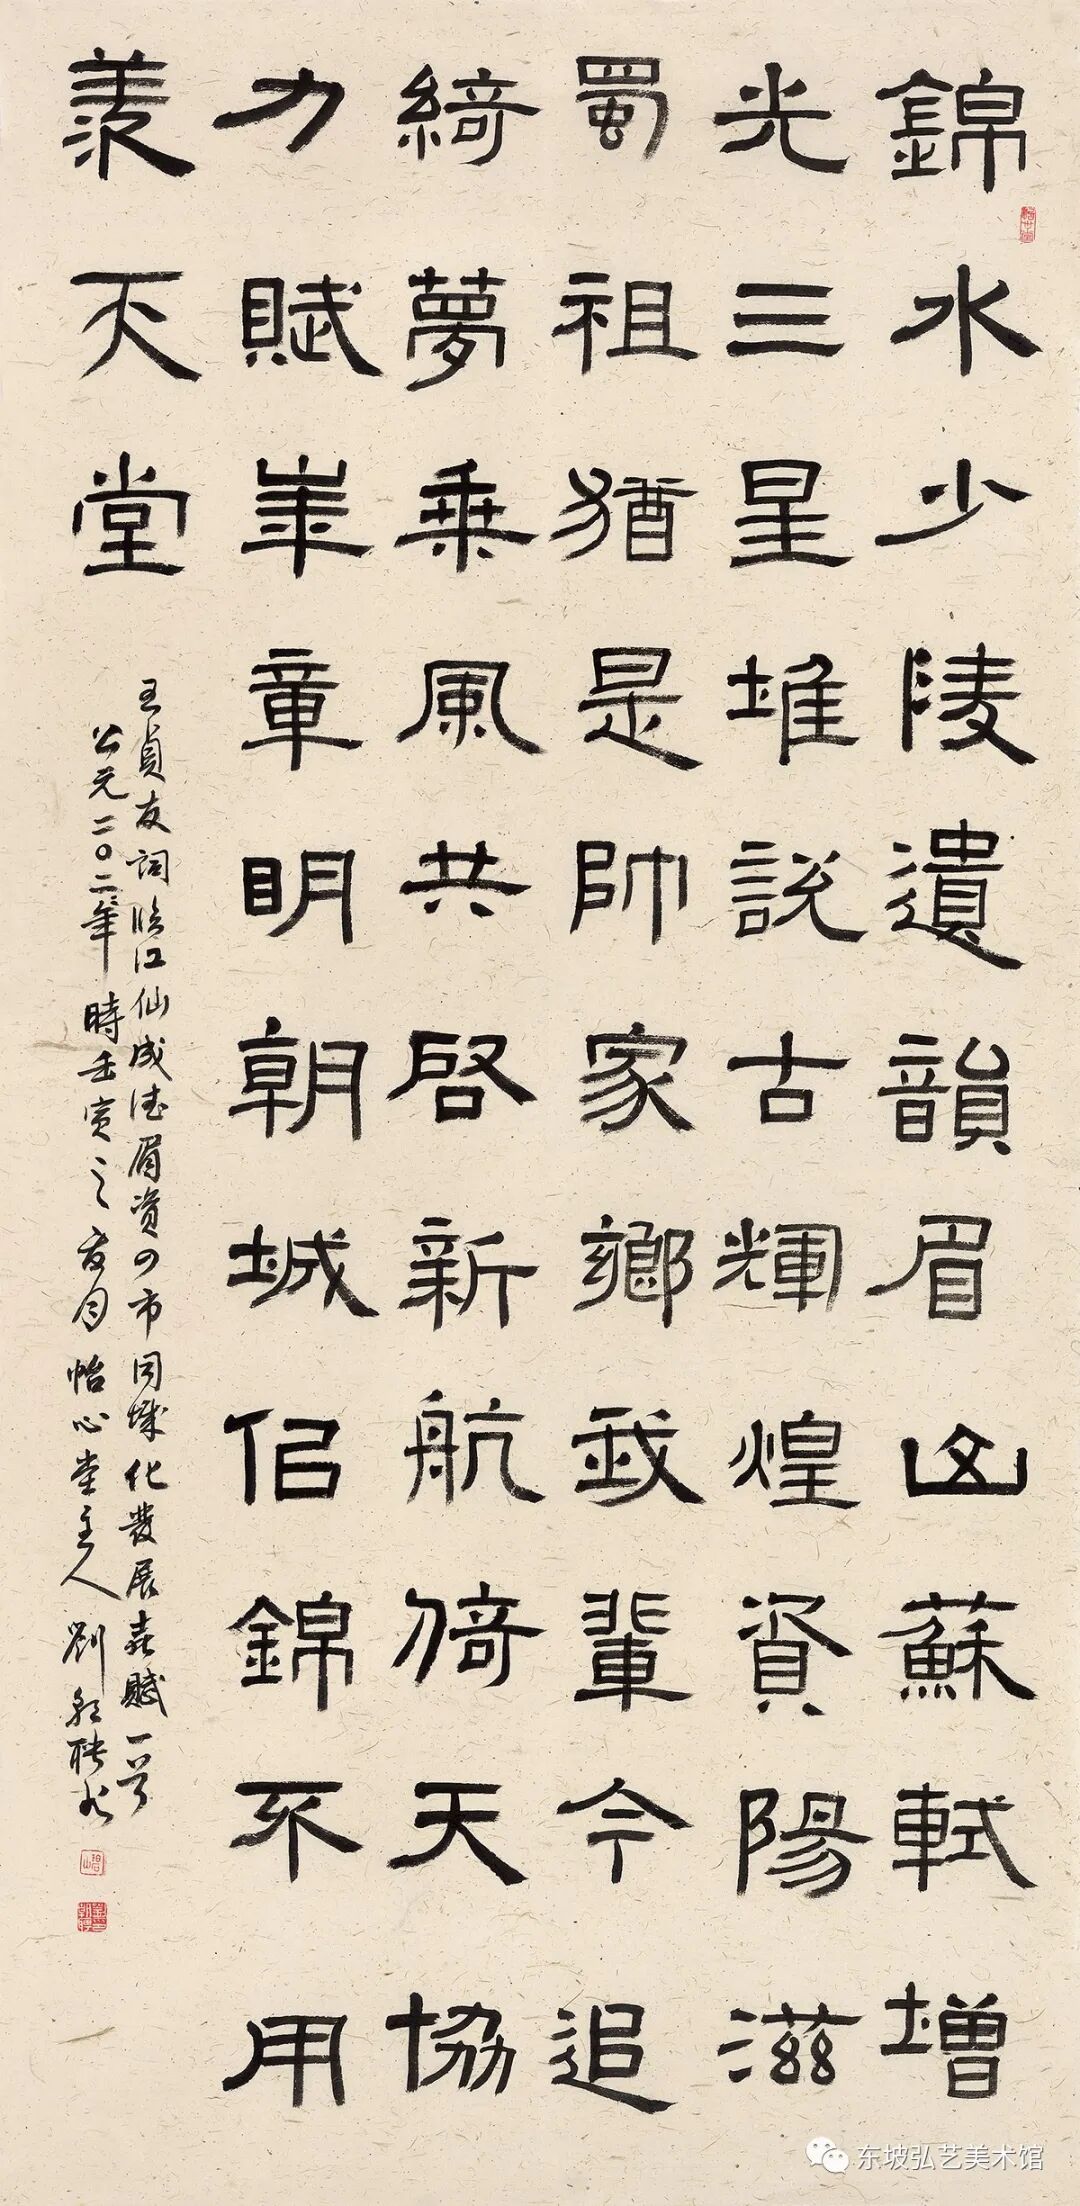 錦水少陵遺韻眉山蘇軾增
光三星堆說古輝煌資陽滋
蜀祖猶是帥家鄉我輩今追
綺夢乘風共啓新航倚天協
力賦華章明朝城侶錦不用
羨天堂
王貞友詞臨江仙成德眉資四市同城化發展喜賦一首
公元二〇二二年時壬寅之夏月怡心堂主人劉
东坡弘艺美术馆